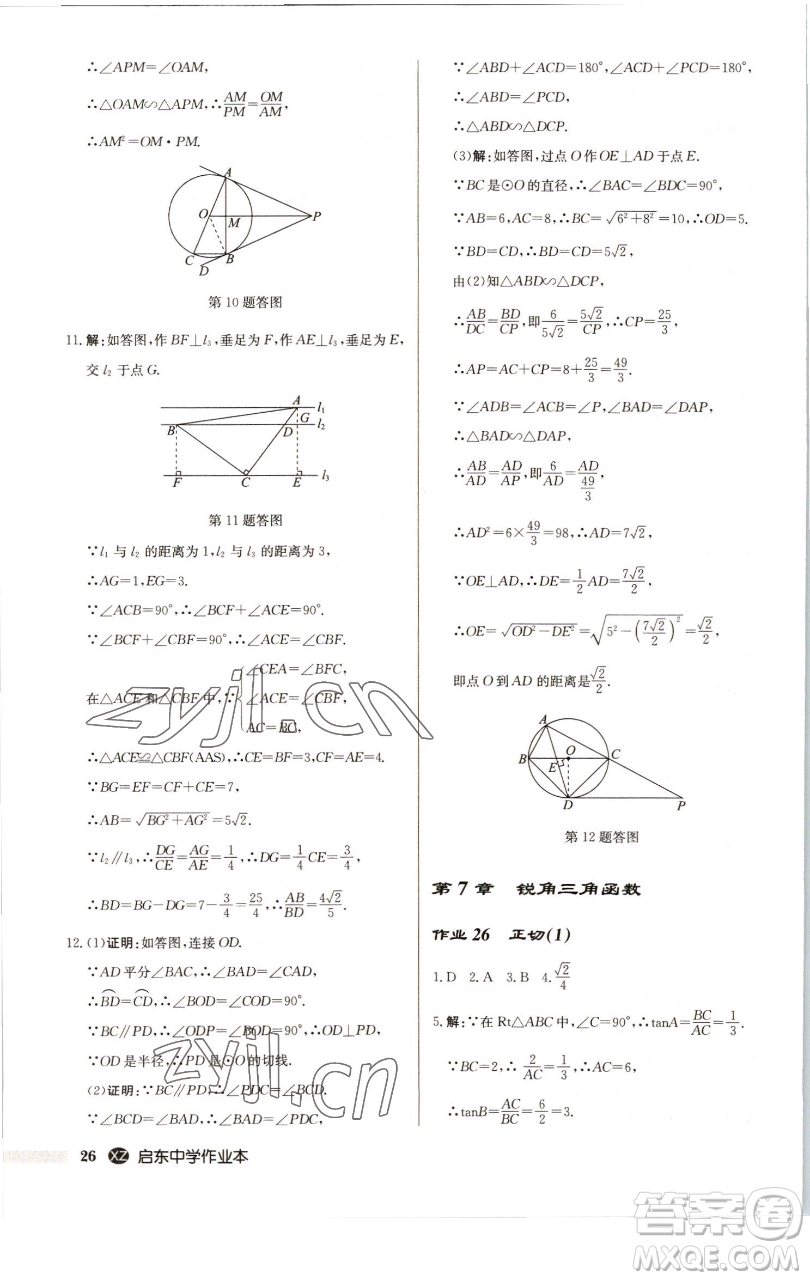 ∴∠APM=∠OAM,
∴△OAM∽△APM,∴AM/PM=OM/AM,
∴AM²=OM·PM.
A
O
M
P
C
D
B
第10题答图
11.解:如答图,作BF⊥l₃,垂足为F,作AE⊥l₃,垂足为E,
交l₂于点G.
A
l₁
G
B
D
l₂
F
C
E
l₃
第11题答图
∵l₁与l₂的距离为1,l₂与l₃的距离为3,
∴AG=1,EG=3.
∵∠ACB=90°,∴∠BCF+∠ACE=90°.
∵∠BCF+∠CBF=90°,∴∠ACE=∠CBF.
在△ACE和△CBF中,∵{∠CEA=∠BFC,
∠ACE=∠CBF,
AC=BC.
∴△ACE≌△CBF(AAS),∴CE=BF=3,CF=AE=4.
∵BG=EF=CF+CE=7,
∴AB=√(BG²+AG²)=5√2.
∵l₂∥l₃,∴DG/CE=AG/AE=1/4,∴DG=1/4CE=3/4,
∴BD=BG-DG=7-3/4=25/4,∴AB/BD=4√2/5.
12.(1)证明:如答图,连接OD.
∵AD平分∠BAC,∴∠BAD=∠CAD,
∴BD=CD,∴∠BOD=∠COD=90°.
∵BC∥PD,∴∠ODP=∠BOD=90°,∴OD⊥PD,
∵OD是半径,∴PD是⊙O的切线.
(2)证明:∵BC∥PD,∴∠PDC=∠BCD.
∵∠BCD=∠BAD,∴∠BAD=∠PDC,
26 XZ 启东中学作业本
∵∠ABD+∠ACD=180°,∠ACD+∠PCD=180°,
∴∠ABD=∠PCD,
∴△ABD∽△DCP.
(3)解:如答图,过点O作OE⊥AD于点E.
∵BC是⊙O的直径,∴∠BAC=∠BDC=90°,
∵AB=6,AC=8,∴BC=√(6²+8²)=10,∴OD=5.
∵BD=CD,∴BD=CD=5√2,
由(2)知△ABD∽△DCP,
∴AB/DC=BD/CP,即6/5√2=5√2/CP,∴CP=25/3,
∴AP=AC+CP=8+25/3=49/3.
∵∠ADB=∠ACB=∠P,∠BAD=∠DAP,
∴△BAD∽△DAP,
∴AB/AD=AD/AP,即6/AD=AD/(49/3),
∴AD²=6×49/3=98,∴AD=7√2,
∵OE⊥AD,∴DE=1/2AD=7√2/2,
∴OE=√(OD²-DE²)=√(5²-(7√2/2)²)=√2/2,
即点O到AD的距离是√2/2.
A
B
O
C
E
D
P
第12题答图
第7章 锐角三角函数
作业26 正切(1)
1.D 2.A 3.B 4.√2/4
5.解:∵在Rt△ABC中,∠C=90°,∴tanA=BC/AC=1/3.
∵BC=2,∴2/AC=1/3,∴AC=6,
∴tanB=AC/BC=6/2=3.
zyjl.cn
zyjl.cn
答案圈
MXQE.COM